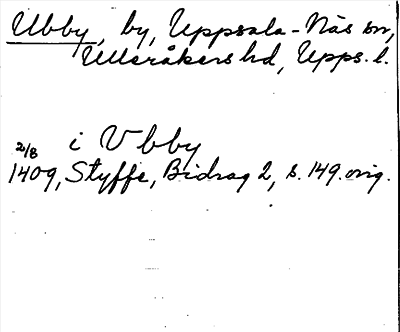 Ubby, by, Uppsala-Näs sn,
Ulleråkers hd, Upps. l.
i Vbby
2/8 1409, Styffe, Bidrag 2, s. 149. orig.